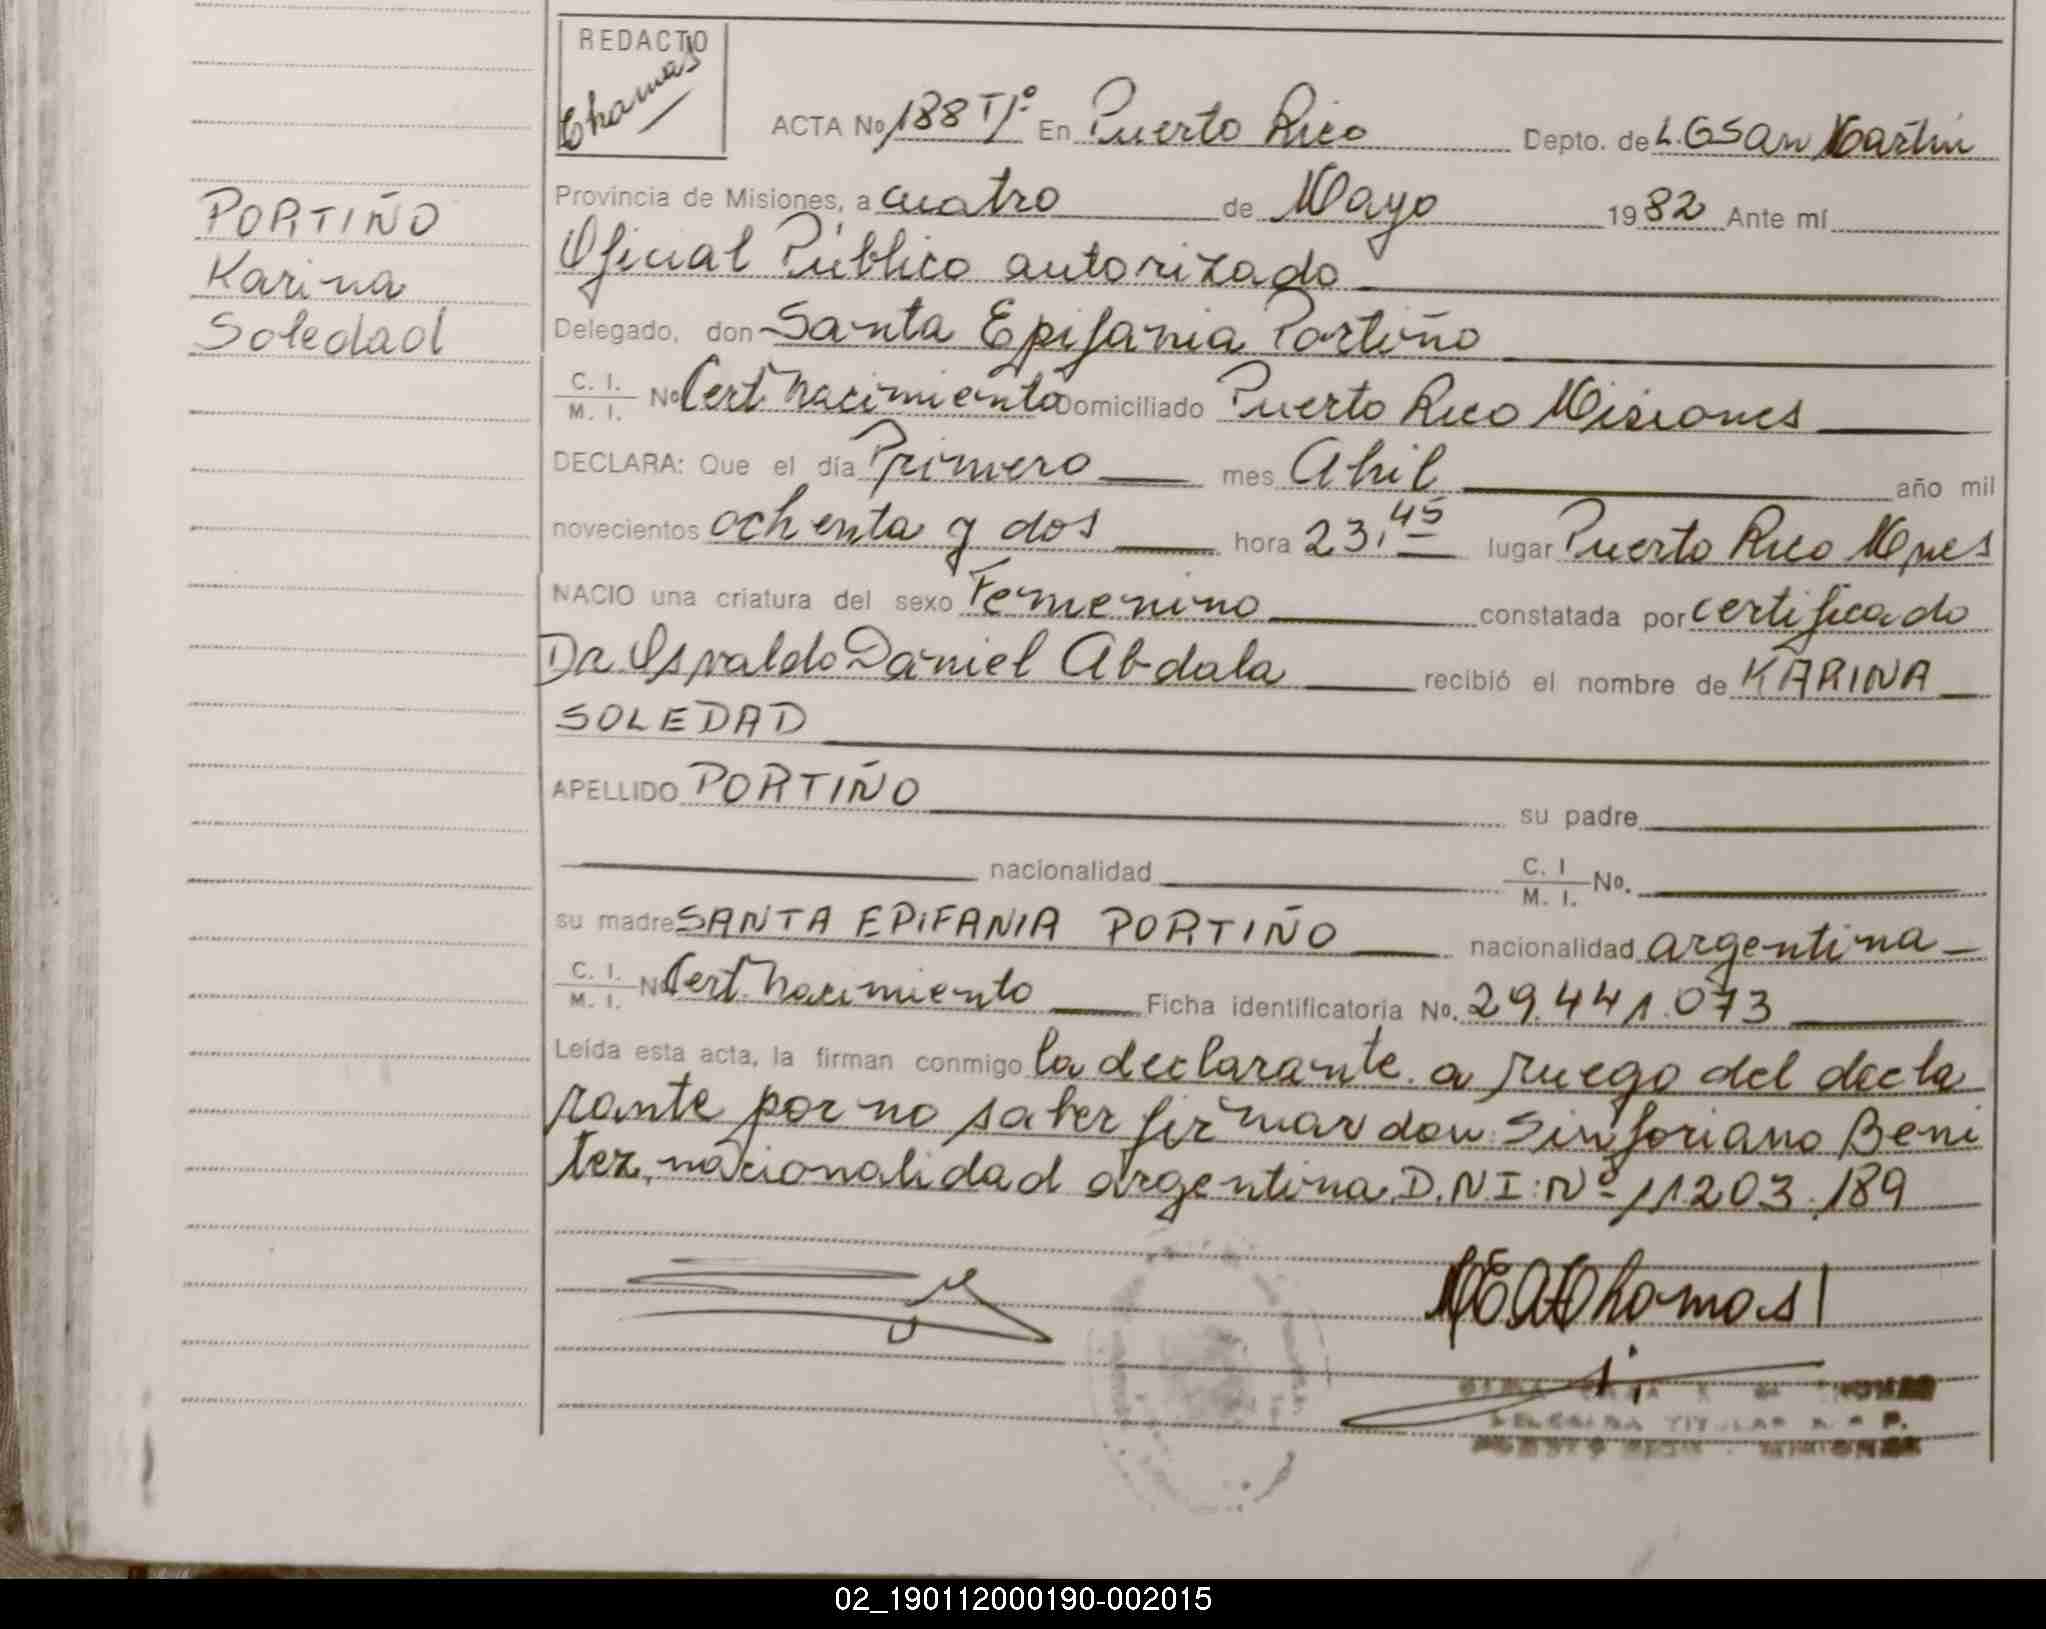 REDACTO
Chamas
ACTA No 188 Tº Iº En Puerto Rico Depto. de L.G San Martin
Provincia de Misiones, a cuatro de Mayo 1982 Ante mí
Oficial Público autorizado
Delegado, don Santa Epifania Portiño
C. I. / M. I. No Cert. Nacimiento Domiciliado Puerto Rico Misiones
DECLARA: Que el día Primero mes Abril año mil
novecientos ochenta y dos hora 23,45 lugar Puerto Rico Mnes
NACIO una criatura del sexo Femenino constatada por certificado
Dr Osvaldo Daniel Abdala recibió el nombre de KARINA
SOLEDAD
APELLIDO PORTIÑO su padre
nacionalidad C. I / M. I. No.
su madre SANTA EPIFANIA PORTIÑO nacionalidad argentina
C. I. / M. I. No Cert. Nacimiento Ficha identificatoria No. 29.441.073
Leída esta acta, la firman conmigo la declarante. a ruego del decla
rante por no saber firmar don Sinforiano Beni
tez, nacionalidad argentina D.N.I: Nº 11203.189
PORTIÑO
Karina
Soledad
TITULAR
02_190112000190-002015